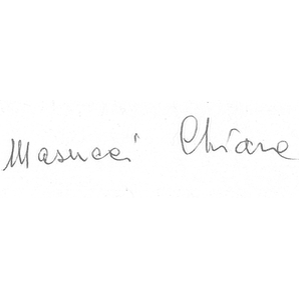 Masucci Chiara